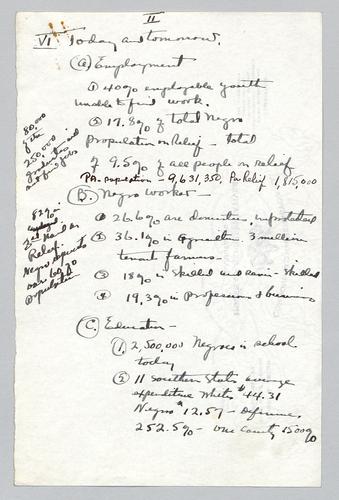 II
VI Today and tomorrow.
(A) Employment
① 40% employable youth
unable to find work.
② 17.8% of total Negro
population on Relief - total
of 9.5% of all people on relief
Pa. population - 9,631,350, On Relief 1,815,000
B. Negro worker -
① 26.6% are domestics, unprotected
② 36.1% in Agriculture 3 million
tenant farmers
③ 18% in Skilled and semi-skilled
④ 19.3% in Professions & business
C. Education -
①. 2,500,000 Negroes in school
today
② 11 Southern States average
expenditure Whites $44.31
Negro $12.57 - Difference
252.5% - one County 1500%
80,000
250,000
graduates
82%
Relief.
Negro
over
population